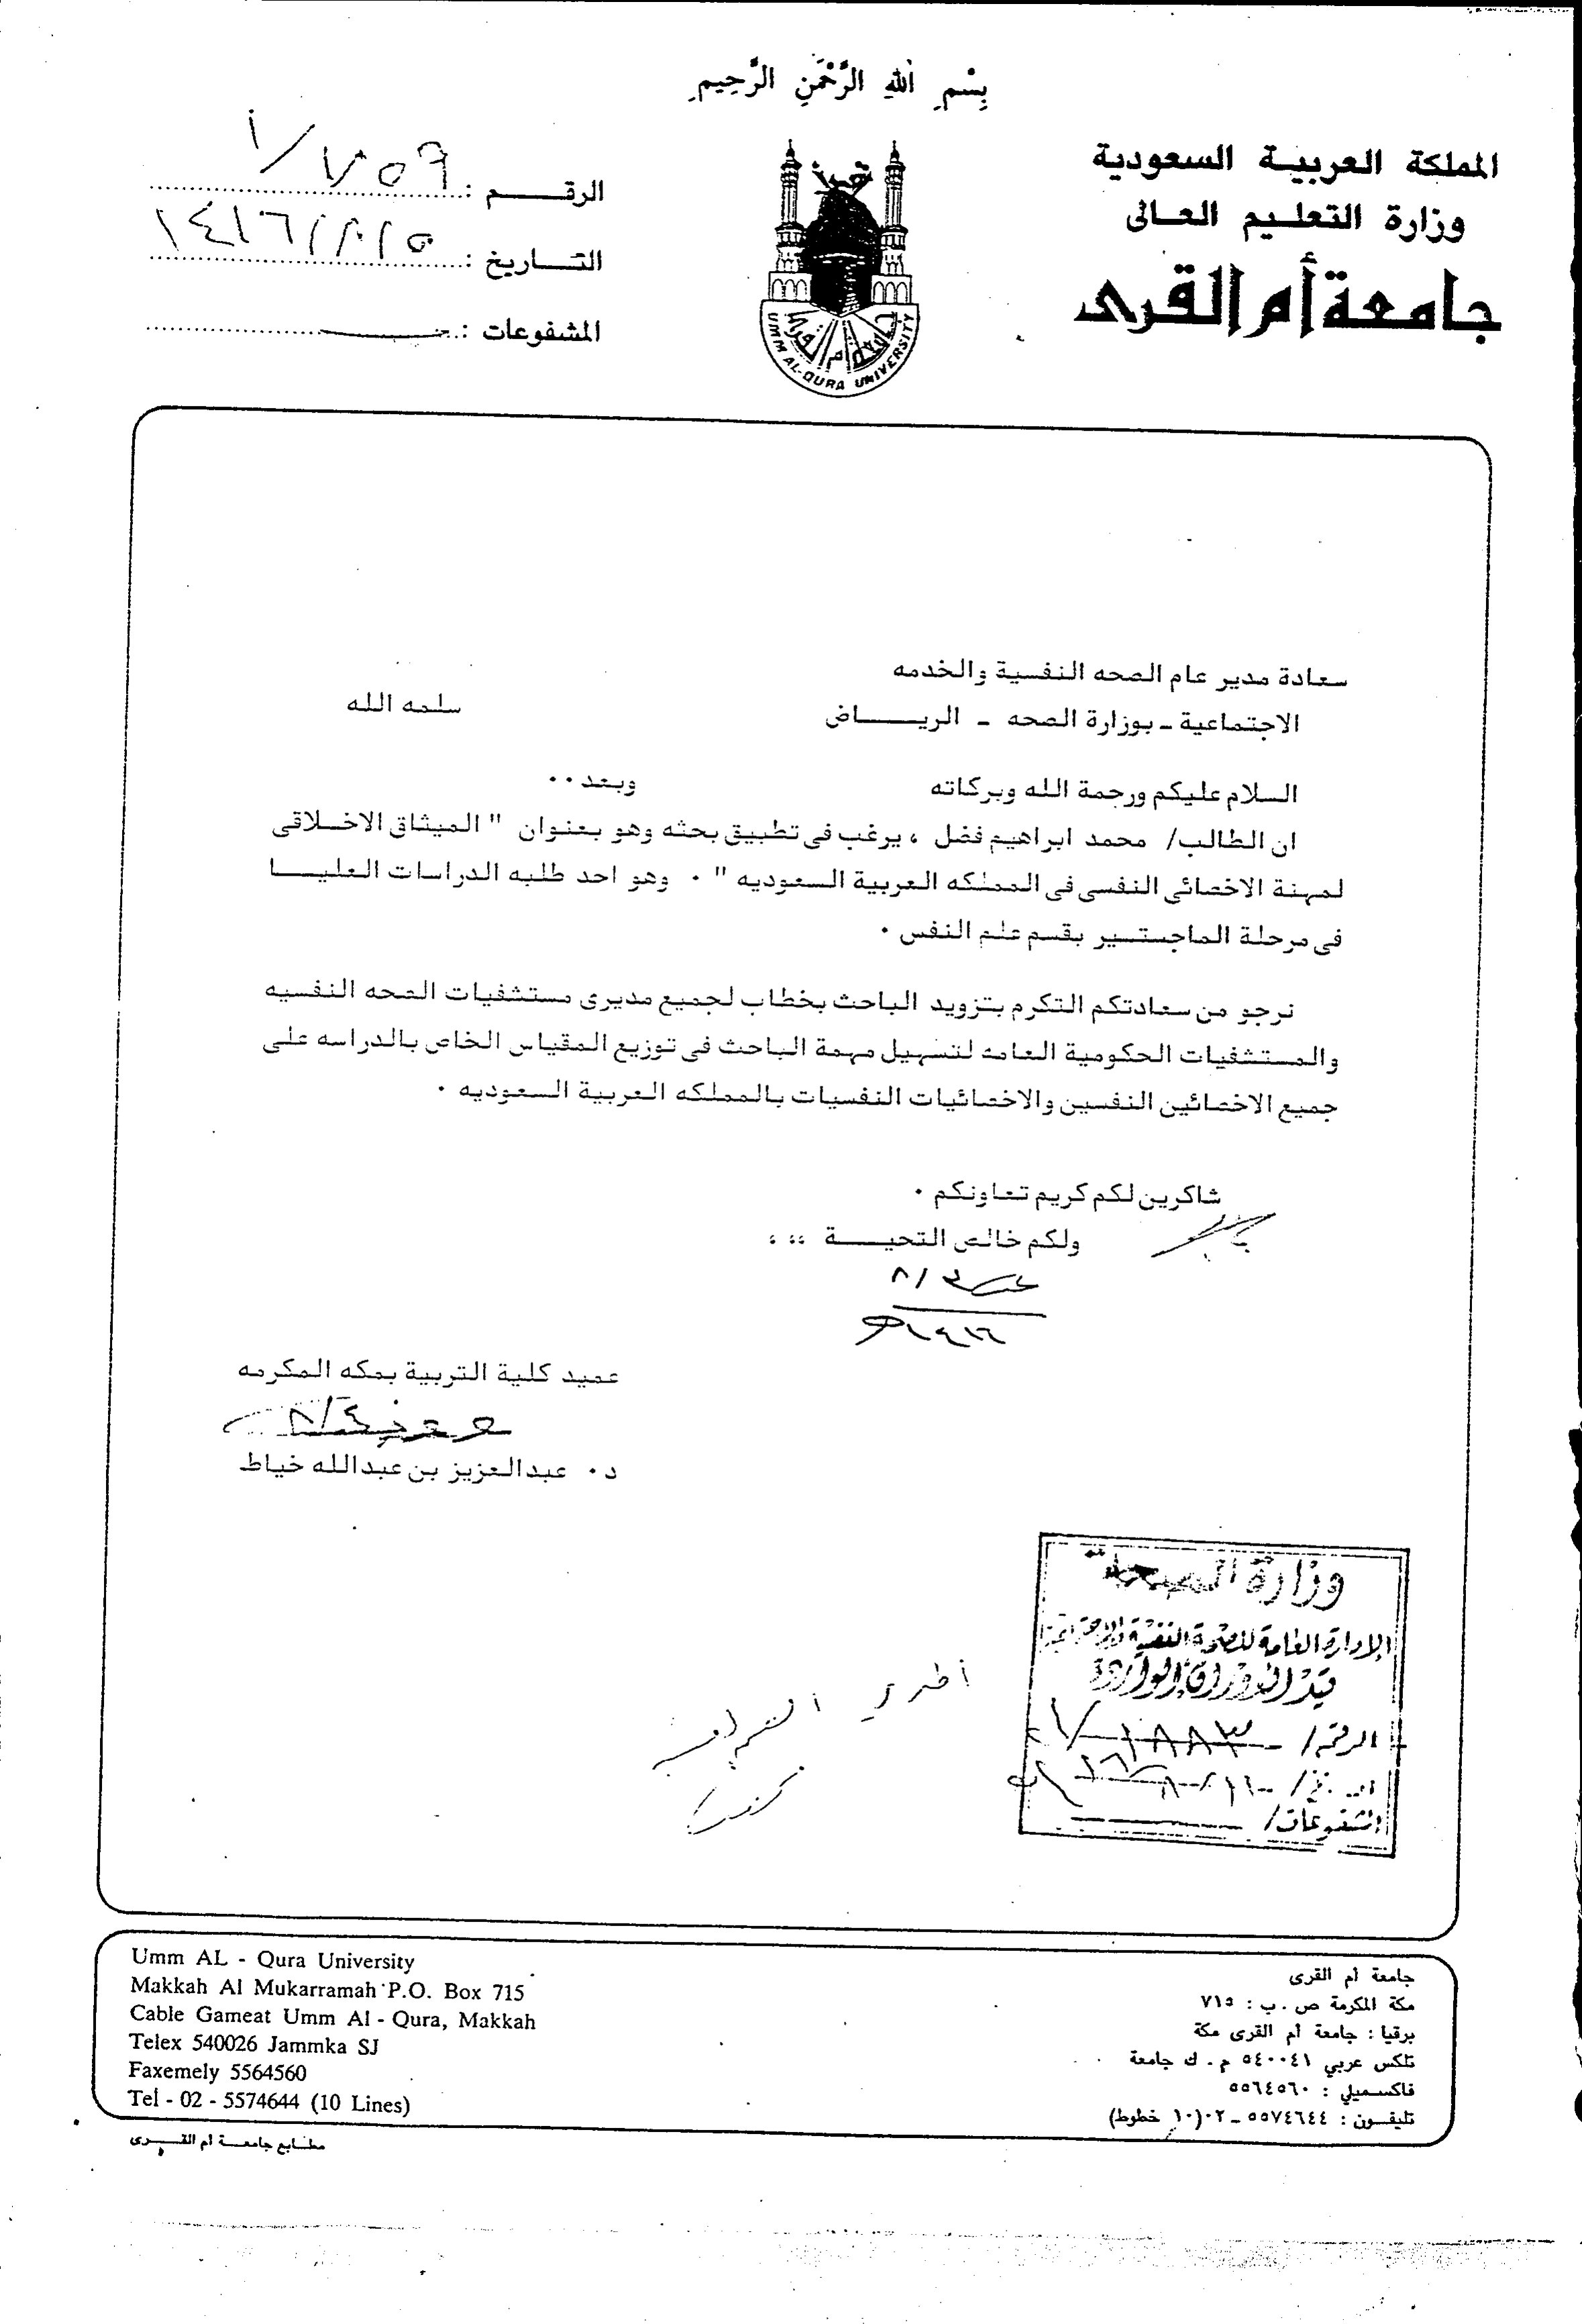 بِسْمِ اللهِ الرَّحْمَنِ الرَّحِيمِ
المملكة العربية السعودية
وزارة التعليم العالى
جامعة أم القرى
الرقم :
التاريخ :
المشفوعات :
UMM AL-QURA UNIVERSITY
سعادة مدير عام الصحه النفسية والخدمه
الاجتماعية ـ بوزارة الصحه ـ الرياض سلمه الله
السلام عليكم ورحمة الله وبركاته وبعد ٠٠
ان الطالب/ محمد ابراهيم فضل ، يرغب فى تطبيق بحثه وهو بعنوان " الميثاق الاخلاقى
لمهنة الاخصائى النفسى فى المملكه العربية السعوديه " ٠ وهو احد طلبه الدراسات العليا
فى مرحلة الماجستير بقسم علم النفس ٠
نرجو من سعادتكم التكرم بتزويد الباحث بخطاب لجميع مديرى مستشفيات الصحه النفسيه
والمستشفيات الحكومية العامه لتسهيل مهمة الباحث فى توزيع المقياس الخاص بالدراسه على
جميع الاخصائين النفسين والاخصائيات النفسيات بالمملكه العربية السعوديه ٠
شاكرين لكم كريم تعاونكم ٠
ولكم خالص التحية ،،،
عميد كلية التربية بمكه المكرمه
د ٠ عبدالعزيز بن عبدالله خياط
وزارة الصحة
الإدارة العامة للصحة النفسية
قيد الأوراق الواردة
الرقم /
التاريخ /
المشفوعات /
Umm AL - Qura University
Makkah Al Mukarramah P.O. Box 715
Cable Gameat Umm Al - Qura, Makkah
Telex 540026 Jammka SJ
Faxemely 5564560
Tel - 02 - 5574644 (10 Lines)
جامعة أم القرى
مكة المكرمة ص . ب : ٧١٥
برقيا : جامعة أم القرى مكة
تلكس عربي ٥٤٠٠٤١ م . ك جامعة
فاكسميلي : ٥٥٦٤٥٦٠
تليفون : ٥٥٧٤٦٤٤ ـ ٠٢ (١٠ خطوط)
مطابع جامعة أم القرى